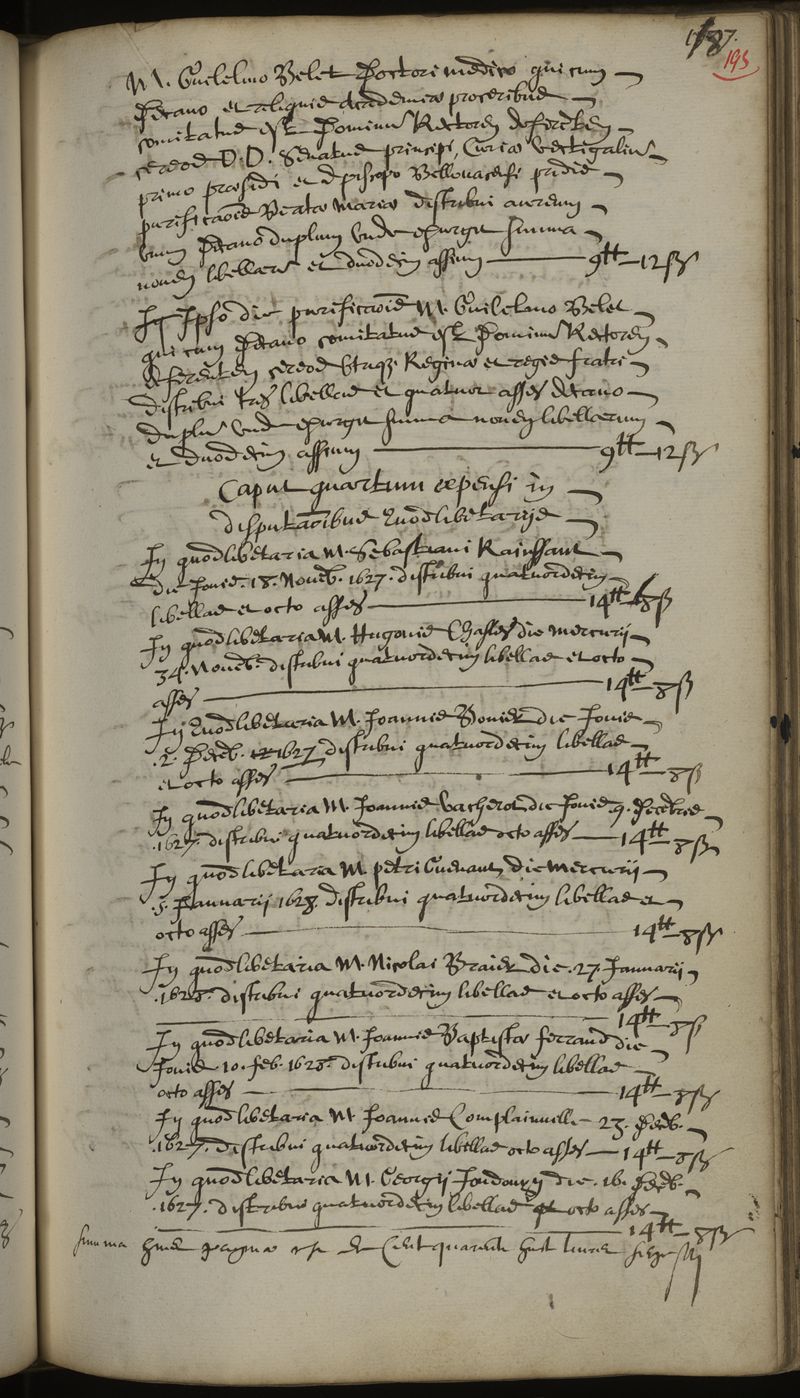 187.
193
M. Guilelmo Belet Doctori medico qui cum
Decano et reliquis Academiæ proceribus
comitatus est Dominum Rectorem deferentem
cereos D.D. Senatus principi, Curiæ vectigalium
primo præsidi et Episcopo Bellovacensi pridie
purificaõis Beatæ Mariæ distribui aureum
unum Decano duplum unde exurgit summa
novem libellarum et duodecim assium 9tt 12ß
In Ipso die purificaõis M. Guilelmo Belet
qui cum Decano comitatus est Dominum Rectorem
deferentem cereos utriqz Reginæ et regis fratri
distribui tres libellas et quatuor asses decano
duplum unde exurgit summa novem libellarum
et duodecim assium 9tt 12ß
Caput quartum expensi in
disputaõibus Quodlibetariis
In quodlibetaria M. Sebastiani Rainssant
die Jovis 18. Novemb. 1627. distribui quatuordecim
libellas et octo asses 14tt 8ß
In quodlibetaria M. Hugonis Chasles die mercurij
24. Novemb. distribui quatuordecim libellas et octo
asses 14tt 8ß
In Quodlibetaria M. Joannis Bouvet die Jovis
2. Decemb. 1627 distribui quatuordecim libellas
et octo asses 14tt 8ß
In quodlibetaria M. Joannis Vacherot die Jovis 9. Decembris
1627. distribui quatuordecim libellas octo asses 14tt 8ß
In quodlibetaria M. petri Guenault die mercurij
5. Januarij 1628. distribui quatuordecim libellas et
octo asses 14tt 8ß
In quodlibetaria M. Nicolai Braier die 27. Januarij
1628. distribui quatuordecim libellas et octo asses
14tt 8ß
In quodlibetaria M. Joannis Baptistæ ferrand die
Jovis 10. feb. 1628. distribui quatuordecim libellas
octo asses 14tt 8ß
In quodlibetaria M. Joannis Complainville 23. Decemb.
1627. distribui quatuordecim libellas octo asses 14tt 8ß
In quodlibetaria M. Georgij Joudouyn die 16. Decemb.
1627. distribui quatuordecim libellas et octo asses
14tt 8ß
summa huius paginæ est Cent quarante huit livres